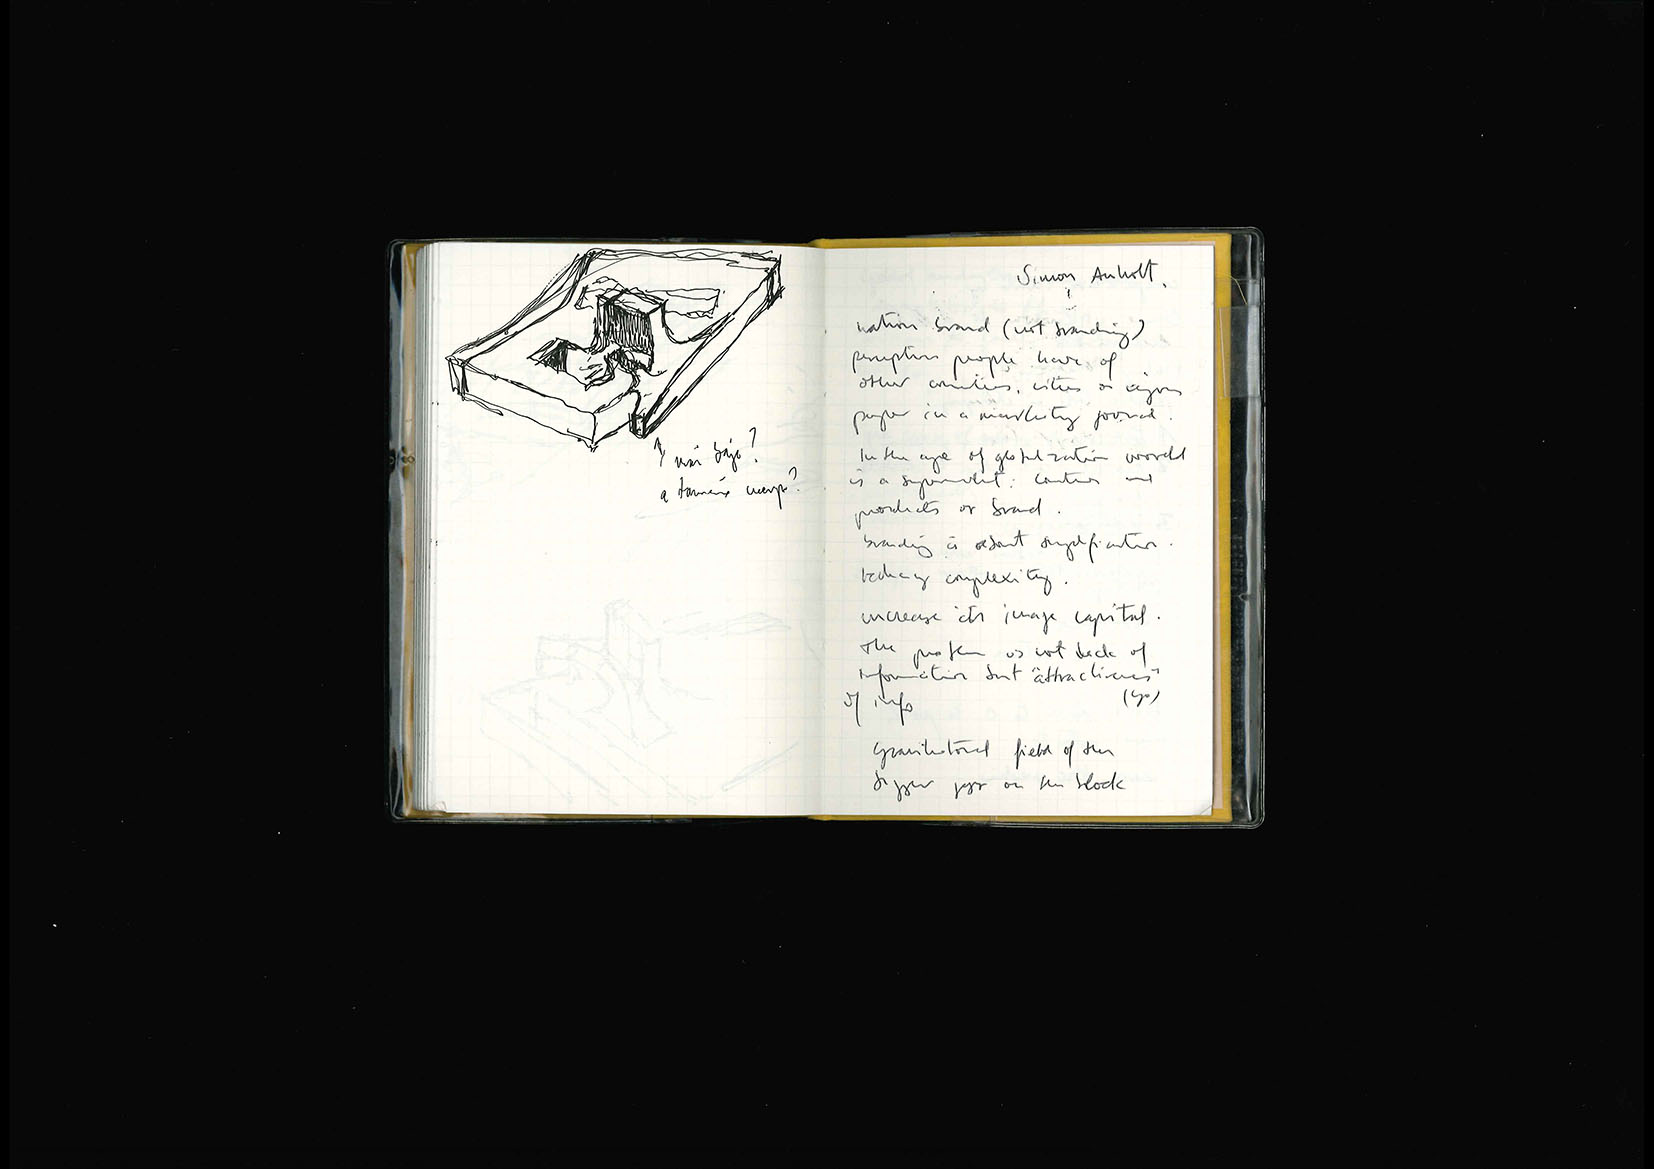 más bajo?
a
Simon Anholt.
nation brand (not branding)
perception people have of
other countries, cities or regions
paper in a marketing journal.
In the age of globalization world
is a supermarket: countries
products or brand.
branding is about simplification.
reducing complexity.
increase its image capital.
the problem is not lack of
information but "attractiveness"
of info
gravitational field of the
bigger on the block